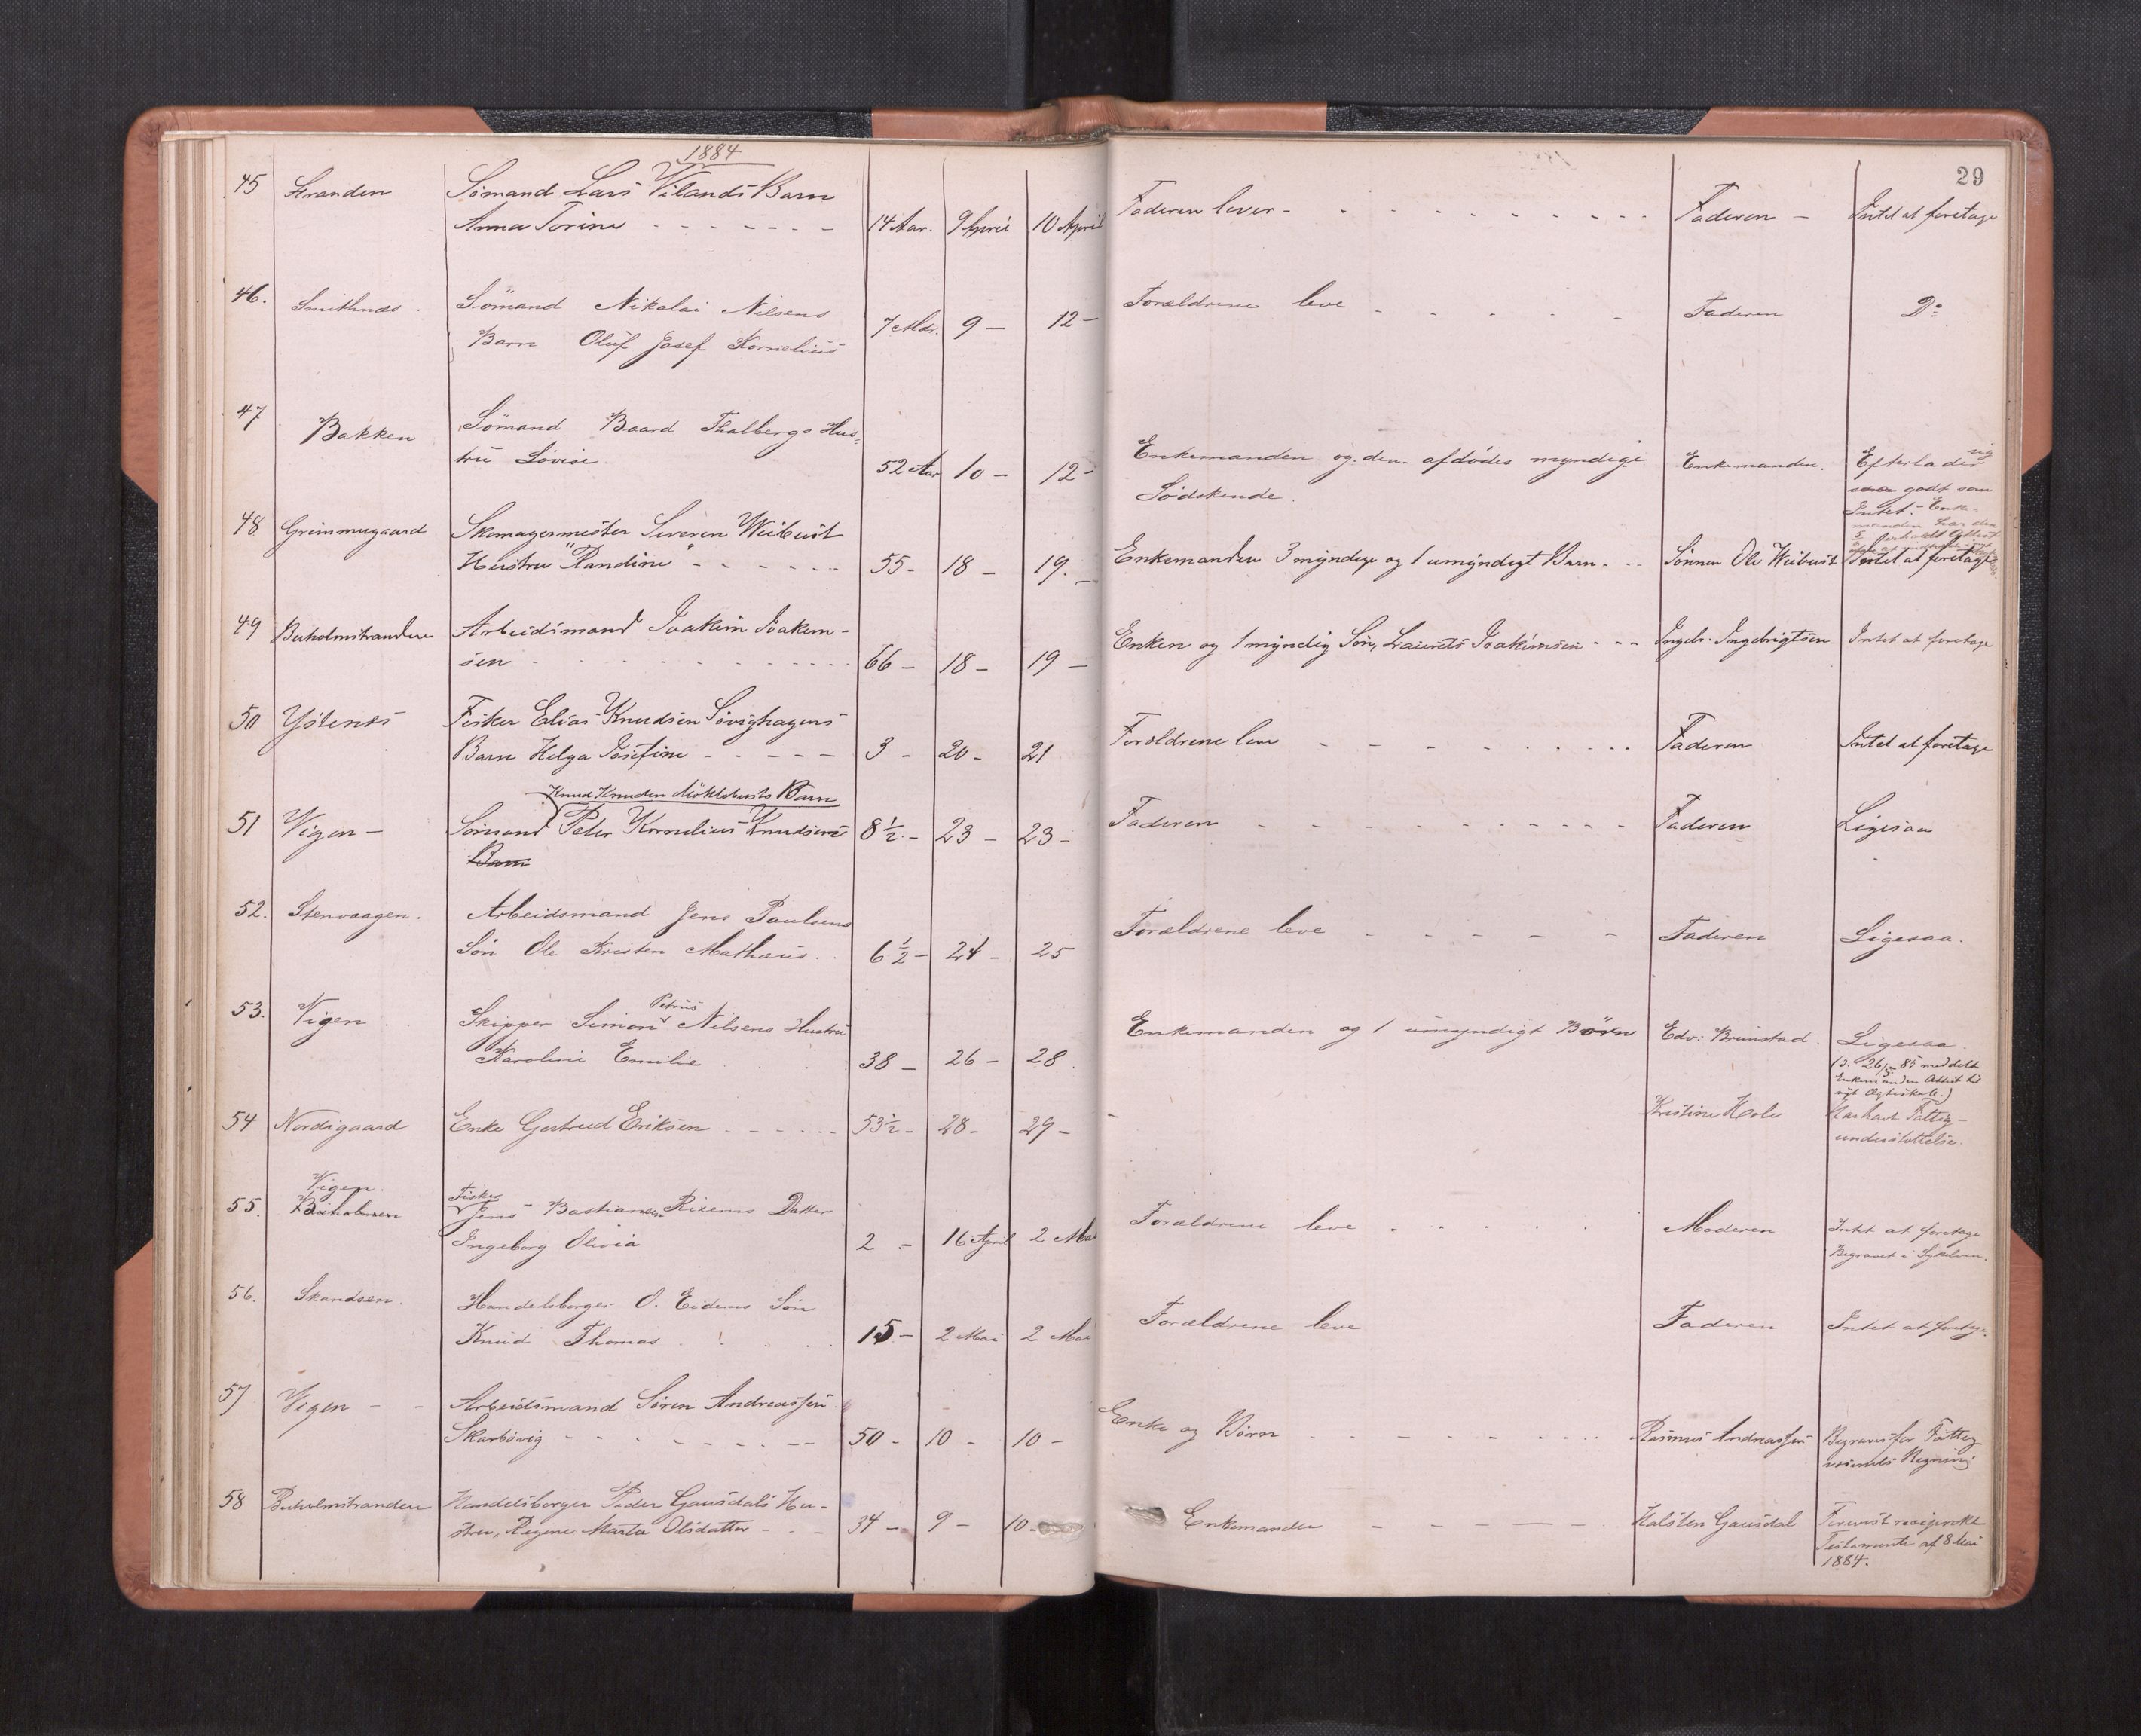 1884
29
45 Stranden Sømand Lars Vilands Barn
Anna Torine - - - - - - - 14 Aar. 9 April 10 April Faderen lever - - - - - - - - - Faderen - Intet at foretage
46. Smithnæs Sömand Nikolai Nilsens
Barn Oluf Josef Kornelius 7 Mdr. 9 - 12 - Forældrene leve - - - - - Faderen Do
47 Bakken Sömand Baard Thalbergs Hus-
tru Lovise 52 Aar 10 - 12 - Enkemanden og den afdödes myndige Enkemanden. Efterlader sig
Södskende. saa godt som
Intet. - Enke-
manden har den
48 Grimmugaard Skomagermester Severin Weibust
Hustru "Randine" - - - - - - 55 - 18 - 19. - Enkemanden 3 myndige og 1 umyndigt Barn - - - Sønnen Ole Weibust Intet at foretage
49 Buholmstranden Arbeidsmand Joakim Joakim-
sen - - - - - - - - - 66 - 18 - 19 - Enken og 1 myndig Søn, Laurits Joakimsen - - - Ingebr. Ingebrigtsen Intet at foretage
50 Ystenes Fisker Elias Knudsen Søvighagens
Barn Helga Josefine - - - - - 3 - 20 - 21 Forældrene leve - - - - - - - - Faderen Intet at foretage
Knud Knudsen Möklebusts Barn
51 Vigen - Sømand Peter Kornelius Knudsens 8 1/2 - 23 - 23 - Faderen - - - - - - - - - Faderen Ligesaa
Barn
52. Stenvaagen. Arbeidsmand Jens Paulsens
Sön Ole Kristen Mathæus. . 6 1/2 - 24 - 25 Forældrene leve - - - - - - Faderen Ligesaa.
Petrus
53. Vigen Skipper Simon Nilsens Hustru
Karoline Emilie 38 - 26 - 28 Enkemanden og 1 umyndigt Börn Edv: Brunstad. Ligesaa.
(d. 26/5 - 85 meddelt
Enkemanden Attest til
nyt Ægteskab.)
54 Nordigaard Enke Gertrud Eriksen - - - - - - 53 1/2 - 28 - 29 - - Kristine Hole Har havt Fattig-
understøttelse.
Vigen
55. Buholmen Fisker Jens Bastiansen Rixems Datter
Ingeborg Olivia 2 - 16 April 2 Mai Forældrene leve - - - - - Moderen Intet at foretage
Begravet i Sykelven.
56. Skandsen. Handelsborger O. Eidems Sön
Knud Thomas . . . . 15 - 2 Mai 2 Mai Forældrene leve Faderen Intet at foretage.
57 Vigen - - Arbeidsmand Søren Andreassen
Skarbøvig - - - - - - - - 50 - 10 - 10 - Enke og Børn - - - - - - - - Rasmus Andreassen Begraves for Fattig
væsenets Regning
58 Buholmstranden Handelsborger Peder Gausdals Hu-
stru, Regine Marta Olsdatter - - - 34 - 9 - 10 - Enkemanden - - - - - - Halsten Gausdal Forevist reciproke
Testamente af 8 Mai
1884.